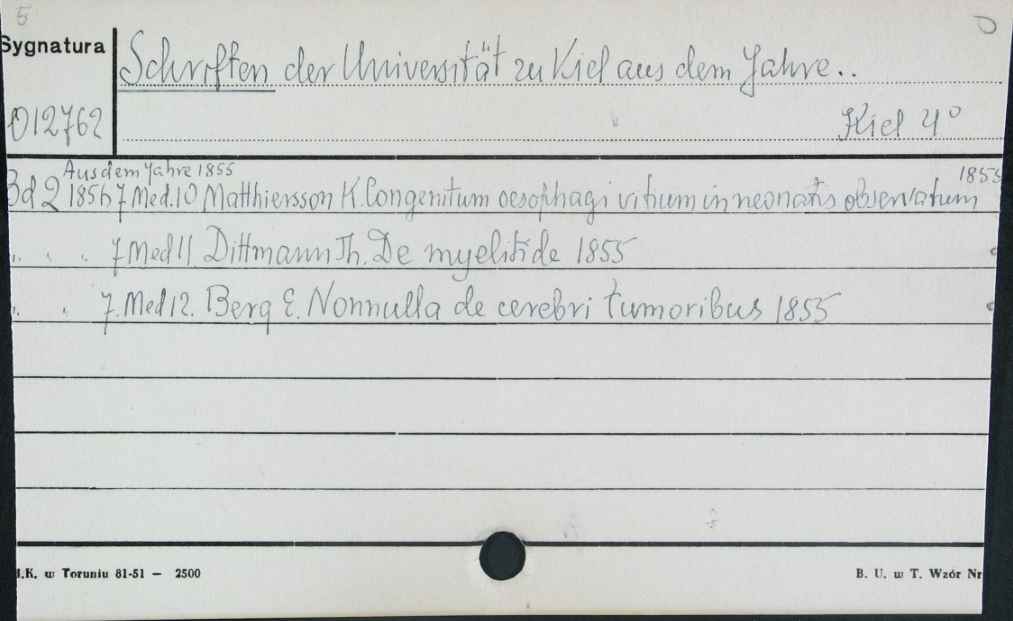 5
Sygnatura
Schriften der Universität zu Kiel aus dem Jahre..
012762
Kiel 4°
Aus dem Jahre 1855
1855
Bd 2 1856 7 Med.10 Matthiersson K. Congenitum oesophagi vitium in neonatis observatum
„ „ „ 7 Med 11 Dittmann Th. De myelitide 1855
„ „ 7. Med 12. Berg E. Nonnulla de cerebri tumoribus 1855
.K. w Toruniu 81-51 — 2500
B. U. w T. Wzór Nr